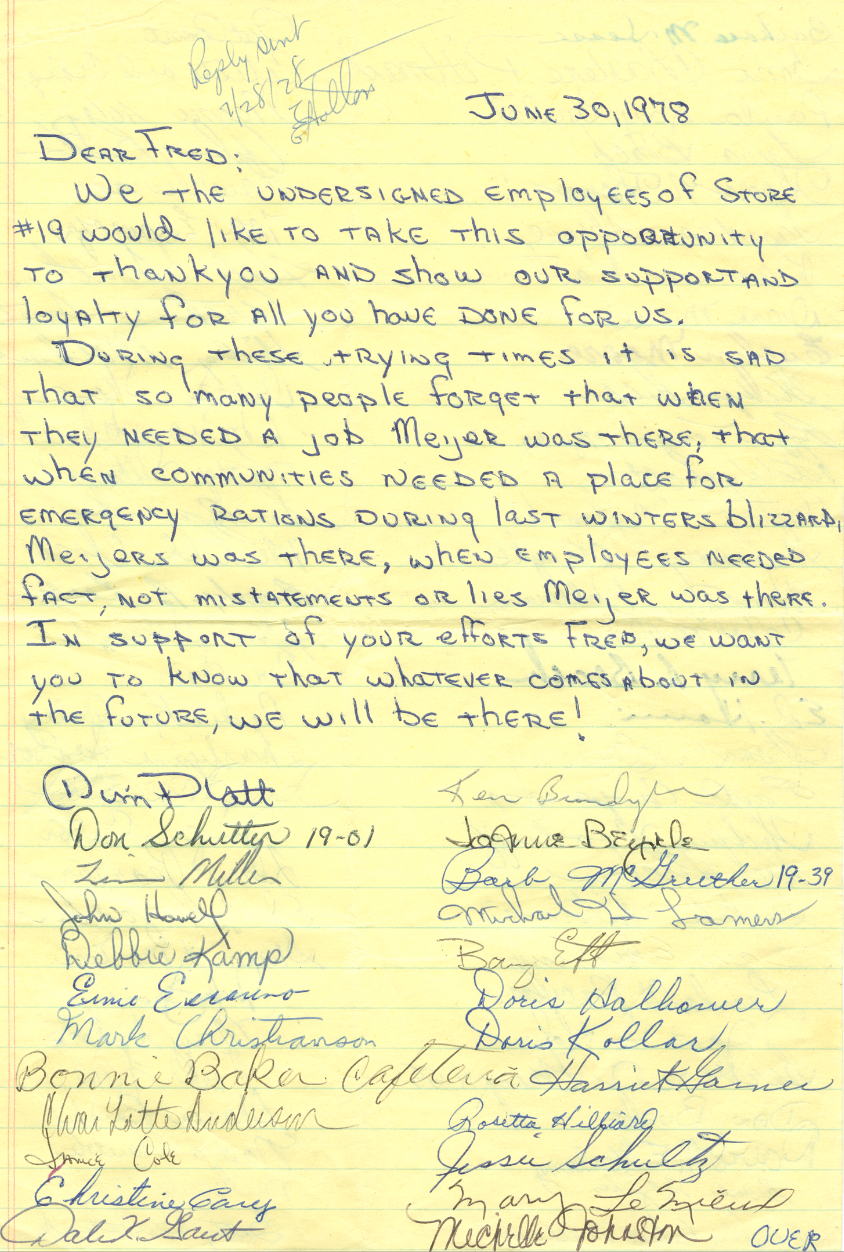 Reply sent
7/28/78
JUNE 30, 1978
DEAR FRED:
We THE UNDERSIGNED EMPLOYEES of STORE
#19 would like TO TAKE THIS OPPORTUNITY
TO THANKYOU AND show OUR SUPPORT AND
loyAlty FOR All you have DONE FOR US.
DURING THESE TRYING TIMES it is SAD
THAT SO MANY people FORGET that WHEN
THEY NEEDED A job Meijer was THERE, that
when COMMUNITIES NEEDED A place for
EMERGENCY RATIONS DURING last WINTERS blizzard,
Meijers was THERE, when EMPLOYEES NEEDED
FACT, NOT MISTATEMENTS OR lies Meijer was there.
IN SUPPORT of your efforts FRED, we want
you TO KNOW THAT WHATEVER COMES ABOUT IN
the FUTURE, WE will be THERE!
Platt Ken
Don Schutter 19-01 JoAnne
Miller Barb McGruther 19-39
John Howell Michael D Lamers
Debbie Kamp
Ernie Doris Halhower
Mark Christianson Doris Kollar
Bonnie Baker Cafeteria Harriet Garner
Charlotte Anderson Rosetta Hilliard
Janice Cole Jessie Schultz
Christine Cary Mary LeMieux
Dale K. Gant Michelle Johnston OVER